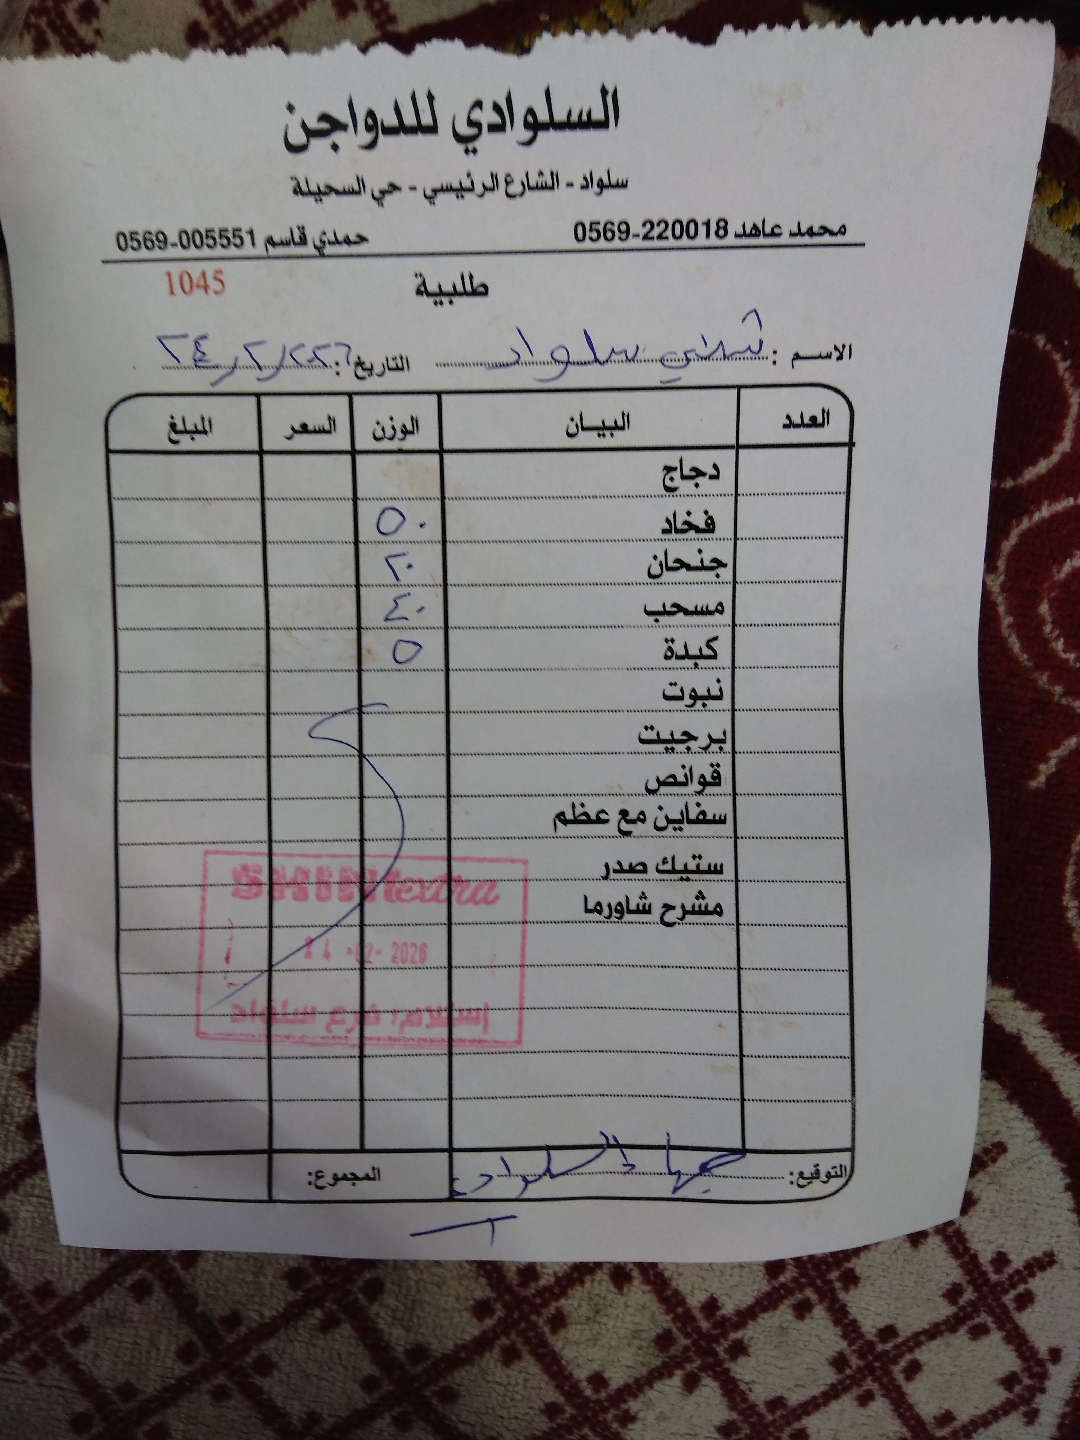 السلوادي للدواجن
سلواد - الشارع الرئيسي - حي السحيلة
محمد عاهد 220018-0569 حمدي قاسم 005551-0569
طلبية 1045
الاسم : شني سلواد التاريخ : ٢٤/٢/٢٠٢٦
العدد البيـان الوزن السعر المبلغ
دجاج
فخاد ٥٠
جنحان ٢٠
مسحب ٤٠
كبدة ٥
نبوت
برجيت
قوانص
سفاين مع عظم
ستيك صدر
مشرح شاورما
SHINI extra
24 -02- 2026
إستلام: فرع سلواد
التوقيع: السلوادي المجموع: